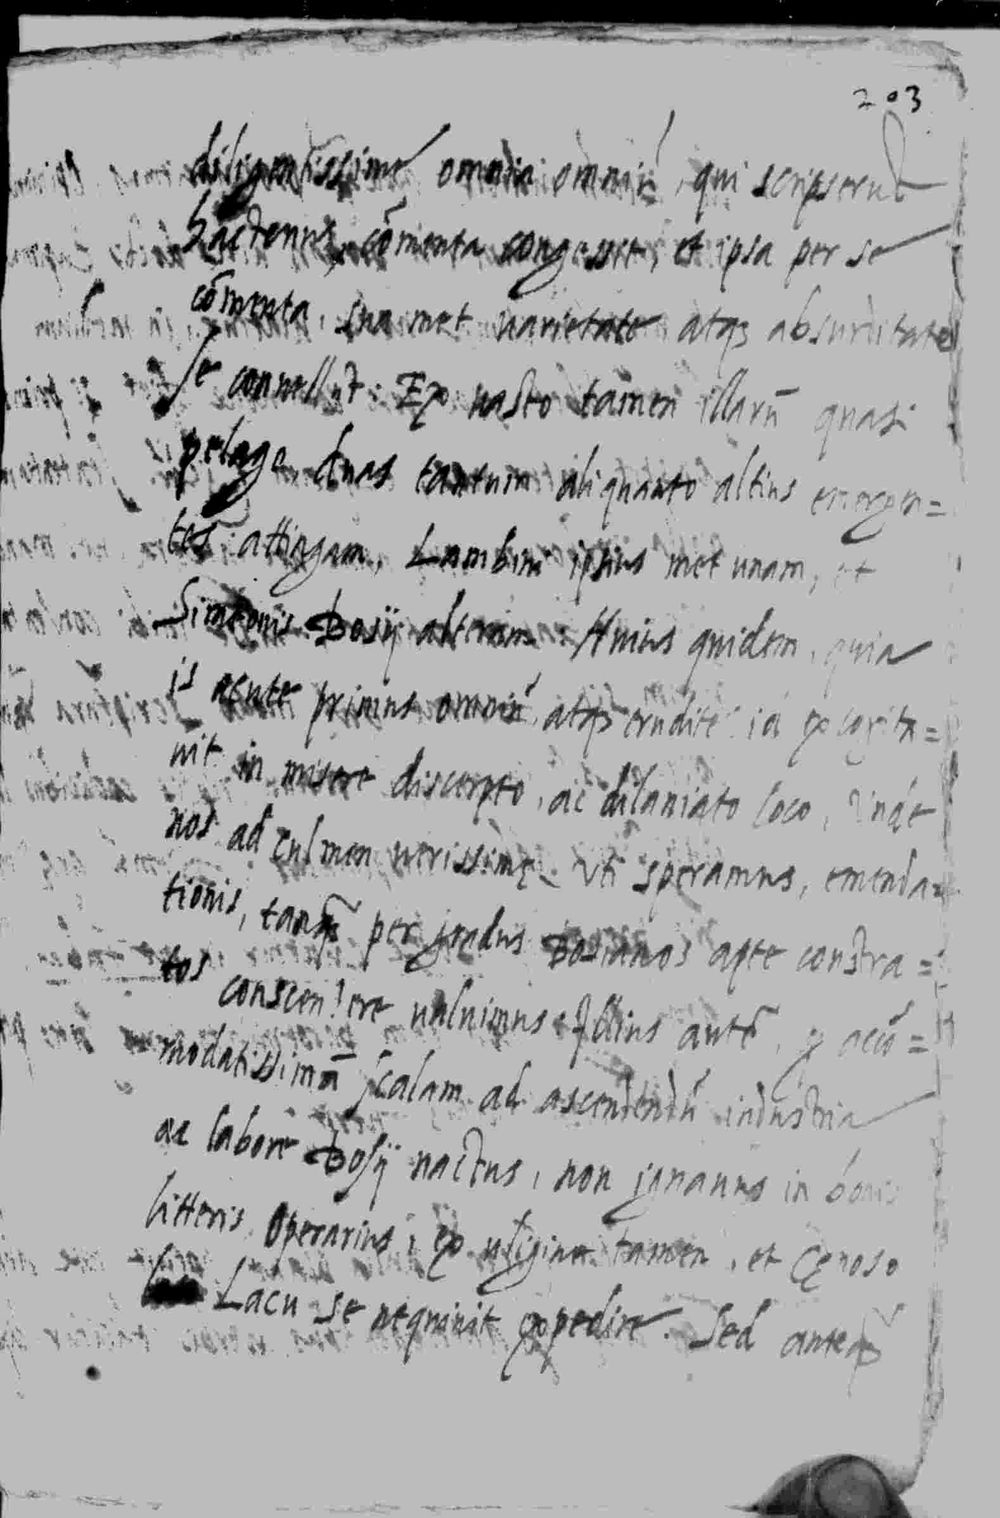 203
diligentissimé omnia omniũ, qui scripserut
hactenus, cõmenta congessit, et ipsa per se
cõmenta, sua met varietate atq3 absurditate
se convellũt. Ex vasto tamen illarũ quasi
pelago duas tantum aliquanto altius emergen=
tes attingam, Lambini ipsius met unam, et
Simeonis Bosij alteram. Huius quidem, quia
is acute primus omniũ, atq3 erudite id excogita=
uit in misere discerpto, ac dilaniato loco, unde
nos ad culmen verissimę, uti speramus, emenda=
tionis, tanq̃ per gradus Bosianos apte constra=
tos conscendere valuimus. Illius autẽ, q accõ=
modatissimã scalam ad ascendendũ industria
ac labore Bosij nactus, non ignauus in bonis
litteris operarius, ex uligine tamen, et cęnoso
Lacu se nequiuit expedire. Sed anteq̃